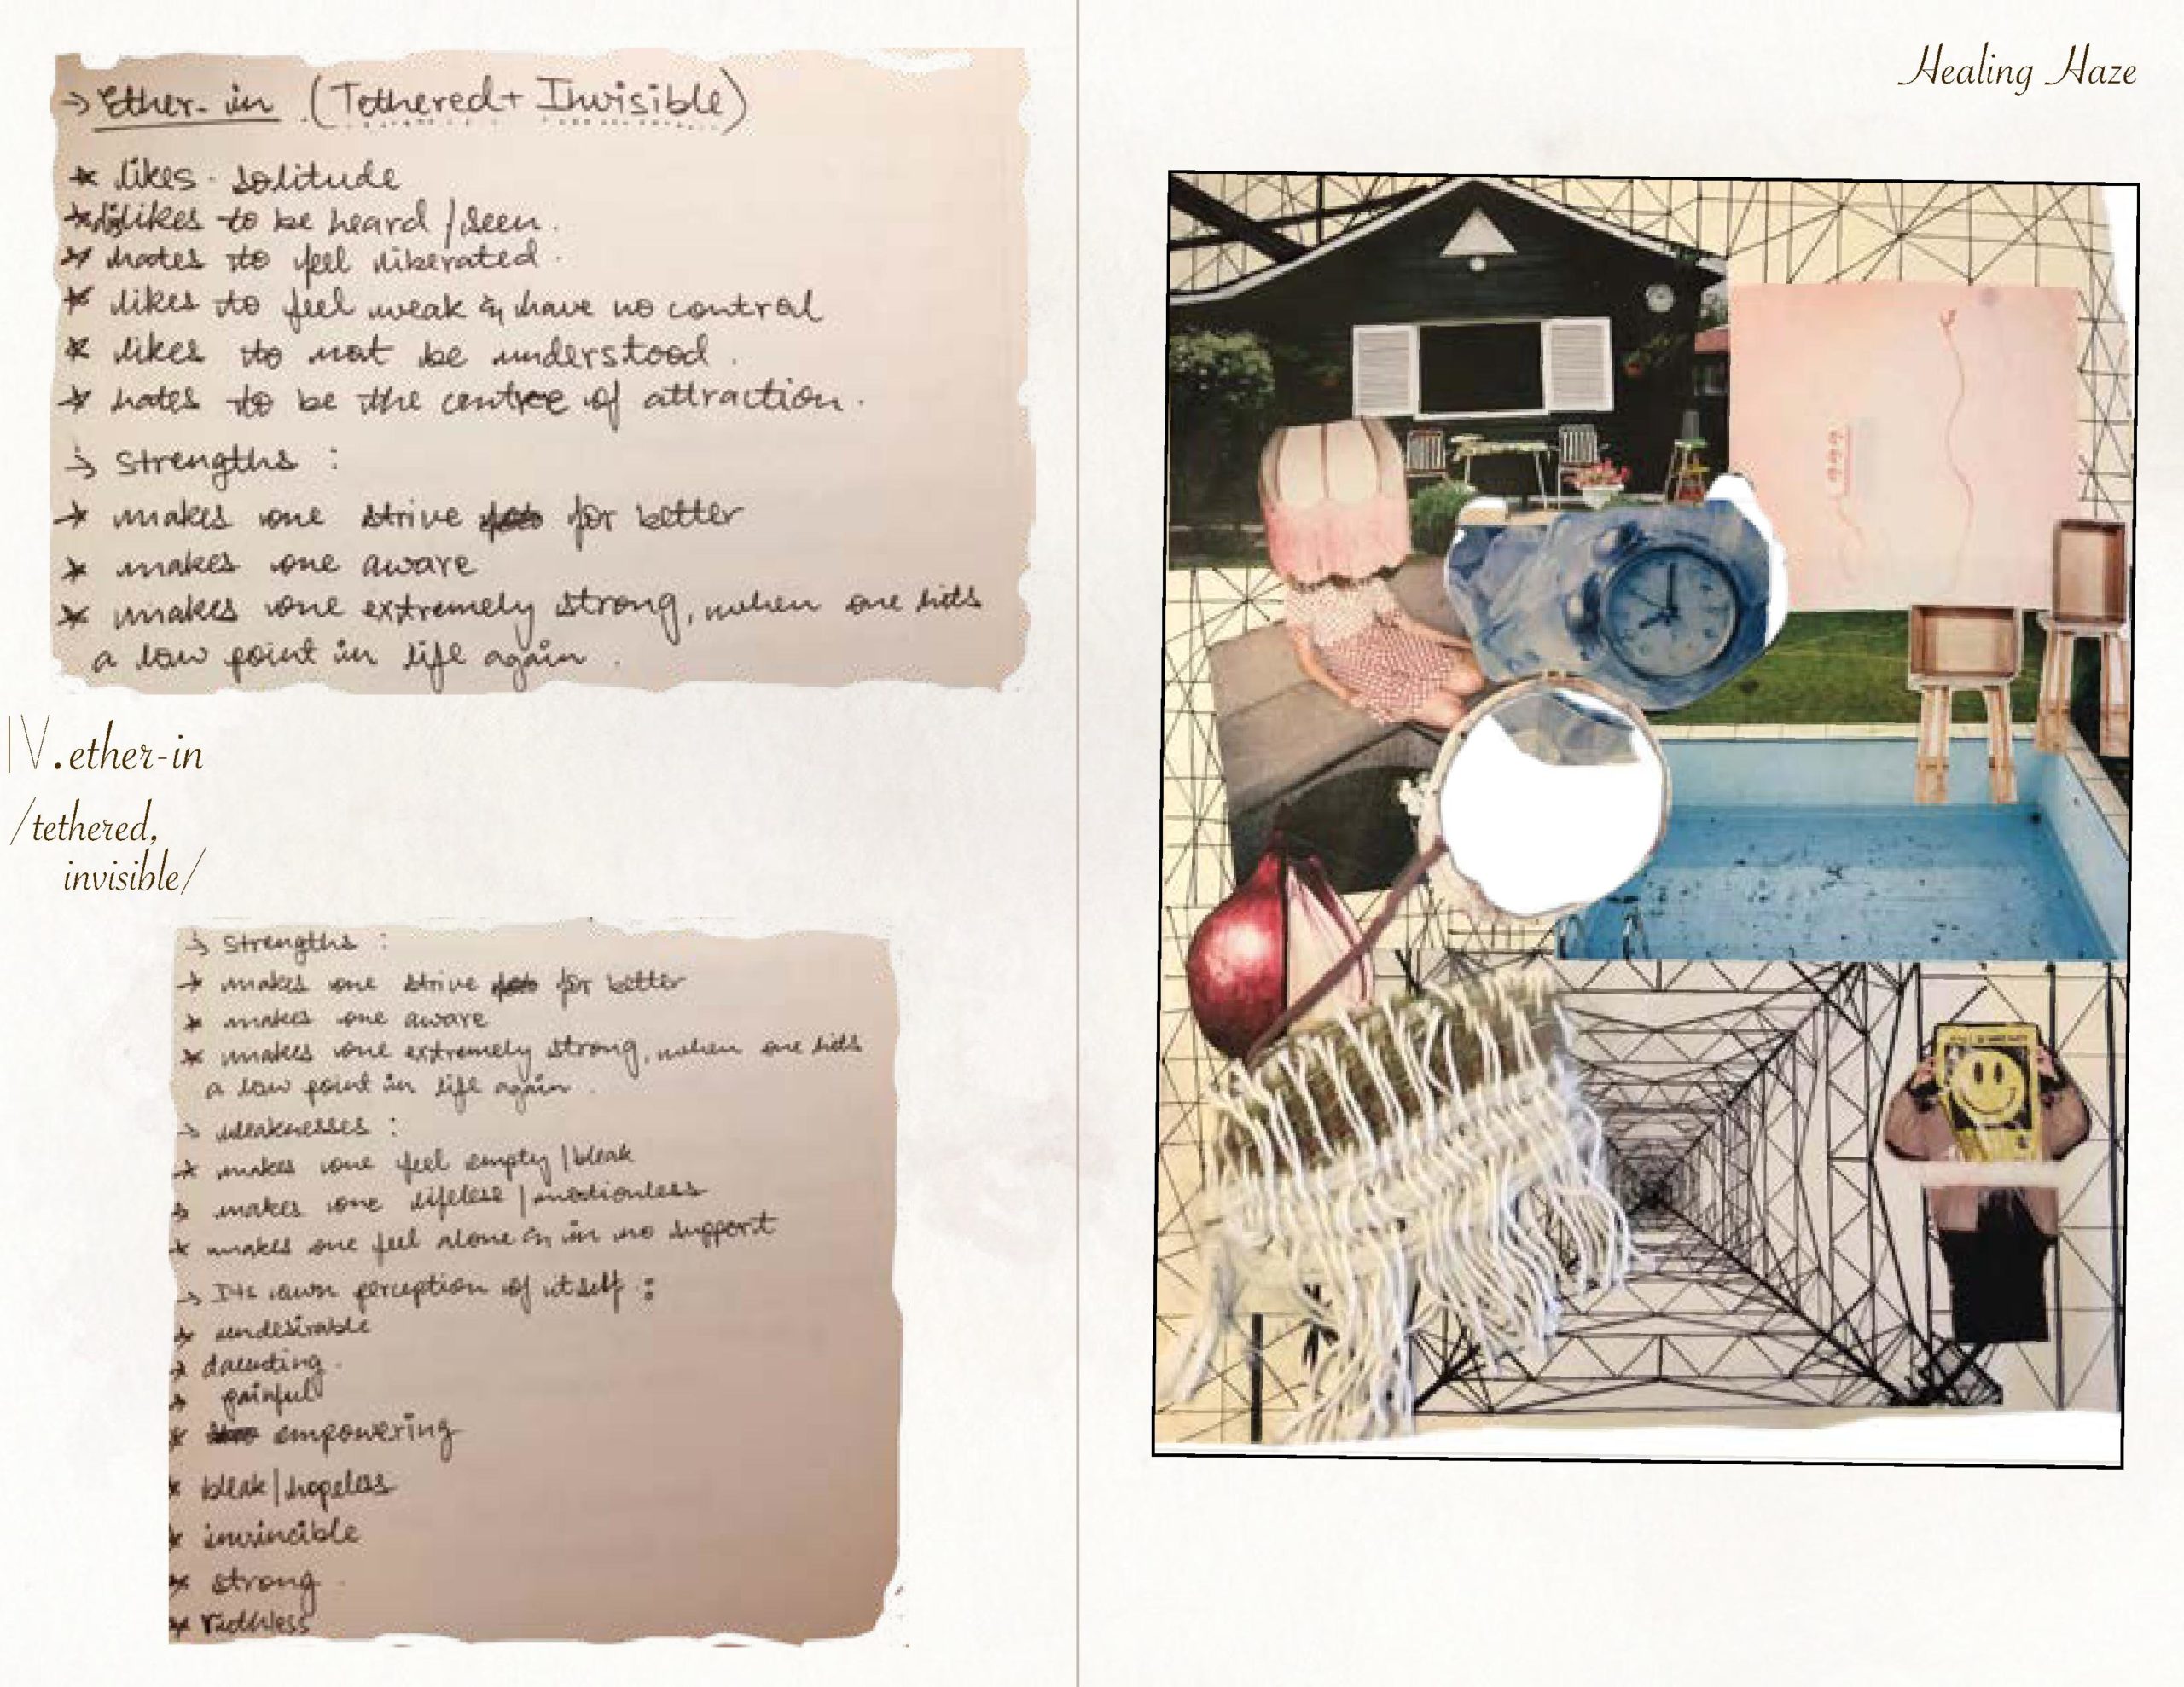 → Ether-in (Tethered + Invisible)
* likes solitude
* dislikes to be heard / seen.
* hates to feel liberated.
* likes to feel weak & have no control
* likes to not be understood.
* hates to be the centre of attraction.
→ Strengths :
* makes one strive for better
* makes one aware
* makes one extremely strong, when one hits
a low point in life again.
IV.ether-in
/tethered,
invisible/
→ Strengths :
* makes one strive for better
* makes one aware
* makes one extremely strong, when one hits
a low point in life again.
→ Weaknesses :
* makes one feel empty / bleak
* makes one lifeless / motionless
* makes one feel alone & in no support
→ Its own perception of itself :
* undesirable
* daunting.
* painful
* empowering
* bleak / hopeless
* invincible
* strong.
Healing Haze